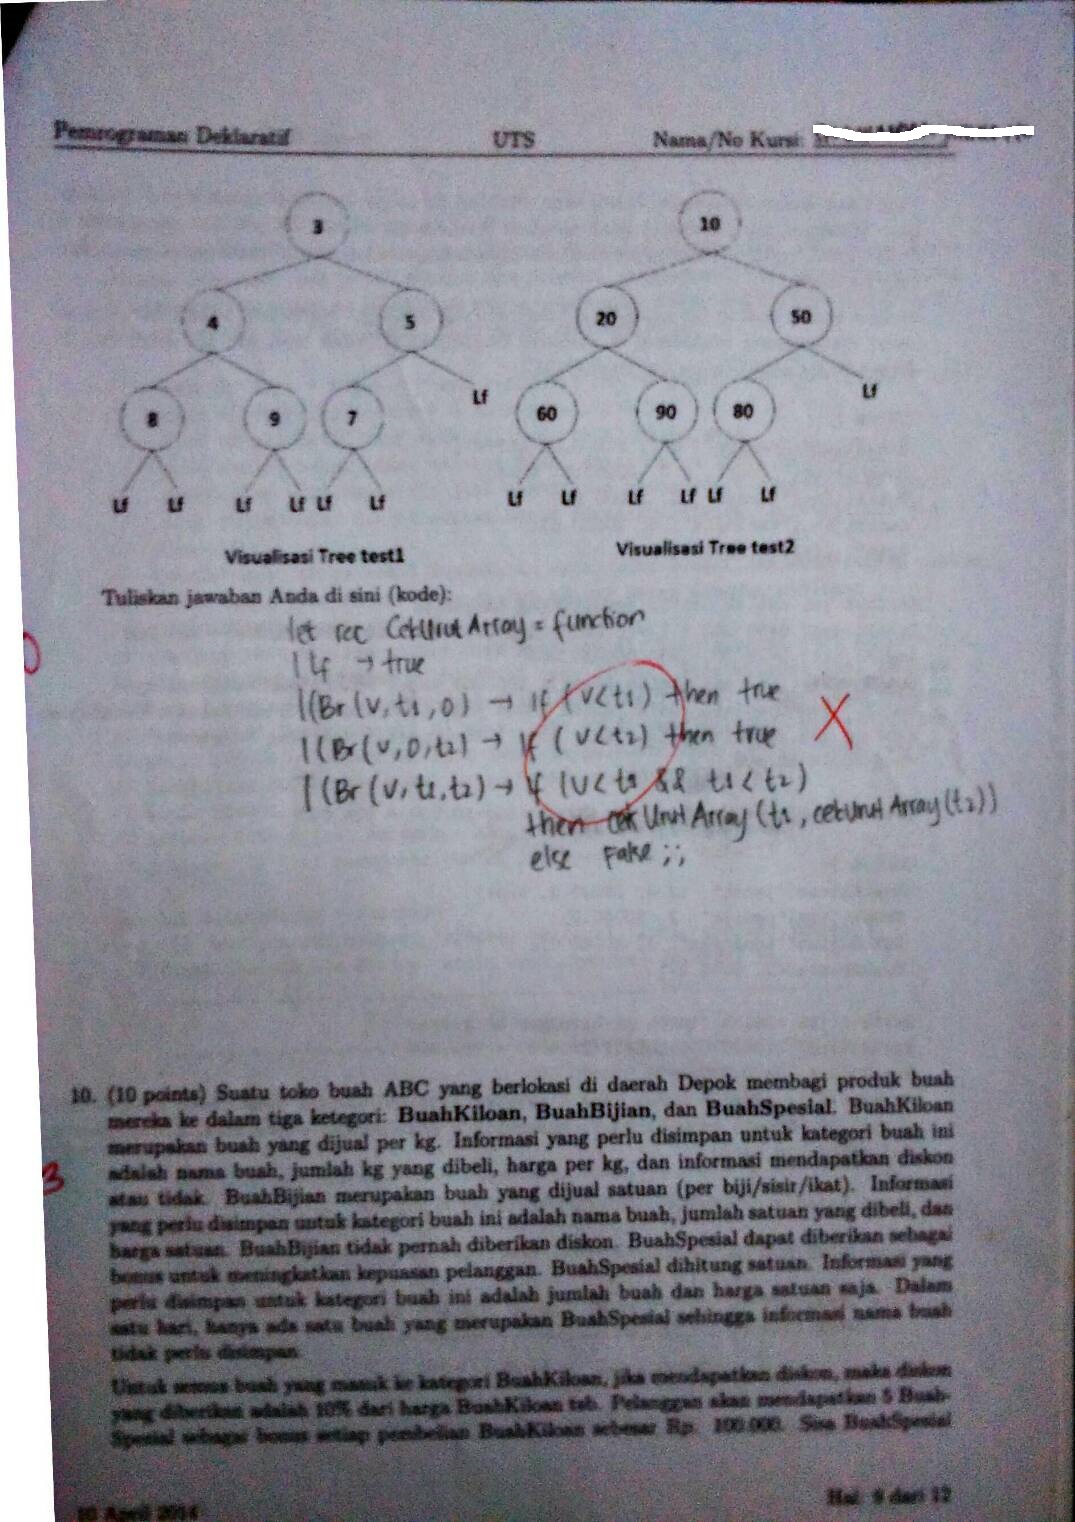 Pemrograman Deklaratif UTS Nama/No Kursi:
3 10
4 5 20 50
Lf Lf
8 9 7 60 90 80
Lf Lf Lf Lf Lf Lf Lf Lf Lf Lf Lf Lf
Visualisasi Tree test1 Visualisasi Tree test2
Tuliskan jawaban Anda di sini (kode):
let rec CekUrutArray = function
0
| Lf → true
| (Br (v, t1, 0) → If (v<t1) then true
| (Br (v, 0, t2) → If (v<t2) then true
| (Br (v, t1, t2) → If (v < t1 && t1 < t2)
then cek Urut Array (t1, cekUrut Array (t2))
else False ;;
10. (10 points) Suatu toko buah ABC yang berlokasi di daerah Depok membagi produk buah
mereka ke dalam tiga ketegori: BuahKiloan, BuahBijian, dan BuahSpesial. BuahKiloan
merupakan buah yang dijual per kg. Informasi yang perlu disimpan untuk kategori buah ini
3 adalah nama buah, jumlah kg yang dibeli, harga per kg, dan informasi mendapatkan diskon
atau tidak. BuahBijian merupakan buah yang dijual satuan (per biji/sisir/ikat). Informasi
yang perlu disimpan untuk kategori buah ini adalah nama buah, jumlah satuan yang dibeli, dan
harga satuan. BuahBijian tidak pernah diberikan diskon. BuahSpesial dapat diberikan sebagai
bonus untuk meningkatkan kepuasan pelanggan. BuahSpesial dihitung satuan. Informasi yang
perlu disimpan untuk kategori buah ini adalah jumlah buah dan harga satuan saja. Dalam
satu hari, hanya ada satu buah yang merupakan BuahSpesial sehingga informasi nama buah
tidak perlu disimpan.
Untuk semua buah yang masuk ke kategori BuahKiloan, jika mendapatkan diskon, maka diskon
yang diberikan adalah 10% dari harga BuahKiloan tsb. Pelanggan akan mendapatkan 5 Buah-
Spesial sebagai bonus setiap pembelian BuahKiloan sebesar Rp. 100.000. Sisa BuahSpesial
10 April 2014 Hal. 9 dari 12